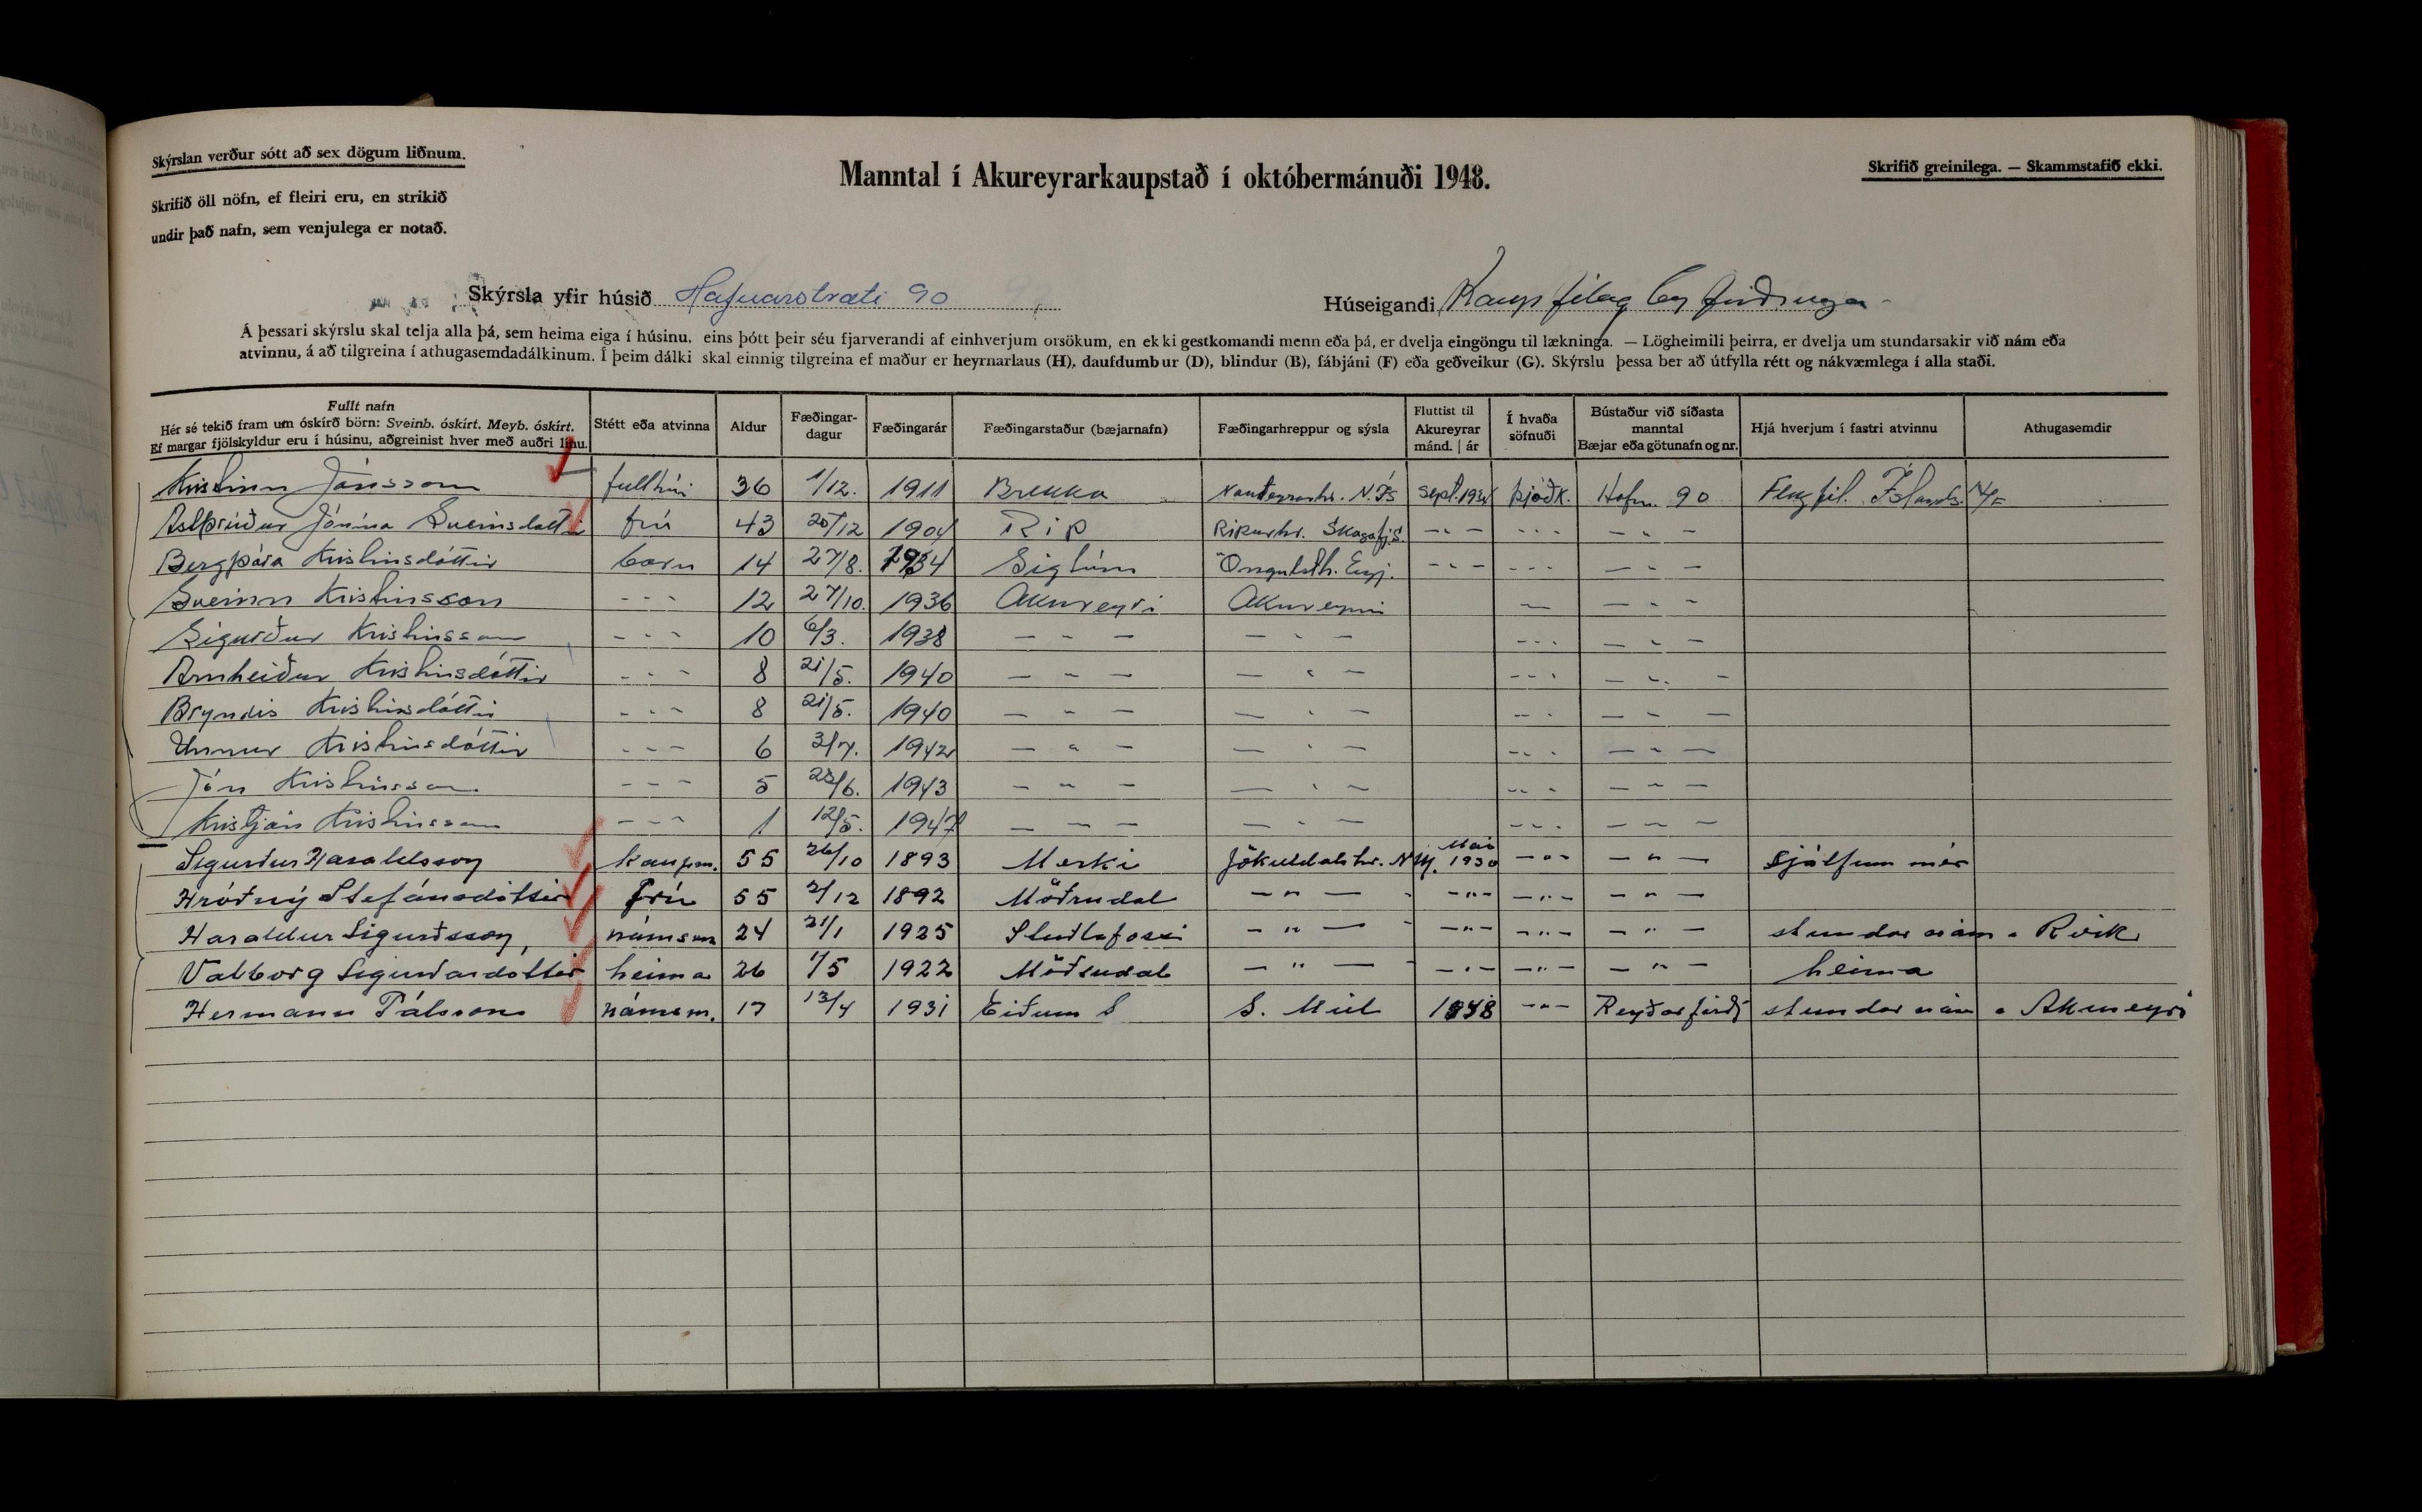 Skýrslan verður sótt að sex dögum liðnum.
Skrifið öll nöfn, ef fleiri eru, en strikið
undir það nafn, sem venjulega er notað.
Manntal í Akureyrarkaupstað í októbermánuði 1948.
Skrifið greinilega. — Skammstafið ekki.
Skýrsla yfir húsið Hafnarstræti 90
Húseigandi Kaupfélag Eyfirðinga
Á þessari skýrslu skal telja alla þá, sem heima eiga í húsinu, eins þótt þeir séu fjarverandi af einhverjum orsökum, en ekki gestkomandi menn eða þá, er dvelja eingöngu til lækninga. — Lögheimili þeirra, er dvelja um stundarsakir við nám eða
atvinnu, á að tilgreina í athugasemdadálkinum. Í þeim dálki skal einnig tilgreina ef maður er heyrnarlaus (H), daufdumbur (D), blindur (B), fábjáni (F) eða geðveikur (G). Skýrslu þessa ber að útfylla rétt og nákvæmlega í alla staði.
Fullt nafn
Hér sé tekið fram um óskírð börn: Sveinb. óskírt. Meyb. óskírt.
Ef margar fjölskyldur eru í húsinu, aðgreinist hver með auðri línu.
Stétt eða atvinna
Aldur
Fæðingar-
dagur
Fæðingarár
Fæðingarstaður (bæjarnafn)
Fæðingarhreppur og sýsla
Fluttist til
Akureyrar
mánd. | ár
Í hvaða
söfnuði
Bústaður við síðasta
manntal
Bæjar eða götunafn og nr.
Hjá hverjum í fastri atvinnu
Athugasemdir
Kristinn Jónsson fulltrúi 36 1/12. 1911 Brekka Nauteyrarhr. N.Ís sept. 1934 þjóðk. Hafn. 90 Flugfél. Íslands h/f
Astþrúður Jónína Sveinsdóttir frú 43 20/12 1904 Ríp Rípurhr. Skagafj.s. - - - - - - - - -
Bergþóra Kristinsdóttir barn 14 27/8. 1934 Sigtún Öngulsth. Eyj. - - - - - - - - -
Sveinn Kristinsson - - - 12 27/10. 1936 Akureyri Akureyri — - - -
Sigurður Kristinsson - - - 10 6/3. 1938 — " — — " — - - - — " —
Arnheiður Kristinsdóttir - - - 8 21/5. 1940 — " — — " — - - - — " —
Bryndís Kristinsdóttir - - - 8 21/5. 1940 — " — — " — - - - — " —
Unnur Kristinsdóttir - - - 6 3/7. 1942 — " — — " — - - - — " —
Jón Kristinsson - - - 5 28/6. 1943 — " — — " — - - - — " —
Kristján Kristinsson - - - 1 12/5. 1947 — — — — " — - - - — — —
Sigurður Haraldsson kaupm. 55 26/10 1893 Merki Jökuldalshr. N.M. Maí 1930 — " — — " — sjálfum mér
Hróðný Stefánsdóttir Frú 55 2/12 1892 Möðrudal — " — — " — — " — — " —
Haraldur Sigurðsson, námsm 24 21/1 1925 Stuðlafossi — " — — " — — " — — " — stundar nám í Rvík
Valborg Sigurðardóttir heima 26 1/5 1922 Möðrudal — " — — " — — " — — " — heima
Hermann Pálsson námsm. 17 13/4 1931 Eiðum S S. Múl 1948 — " — Reyðarfirði stundar nám á Akureyri